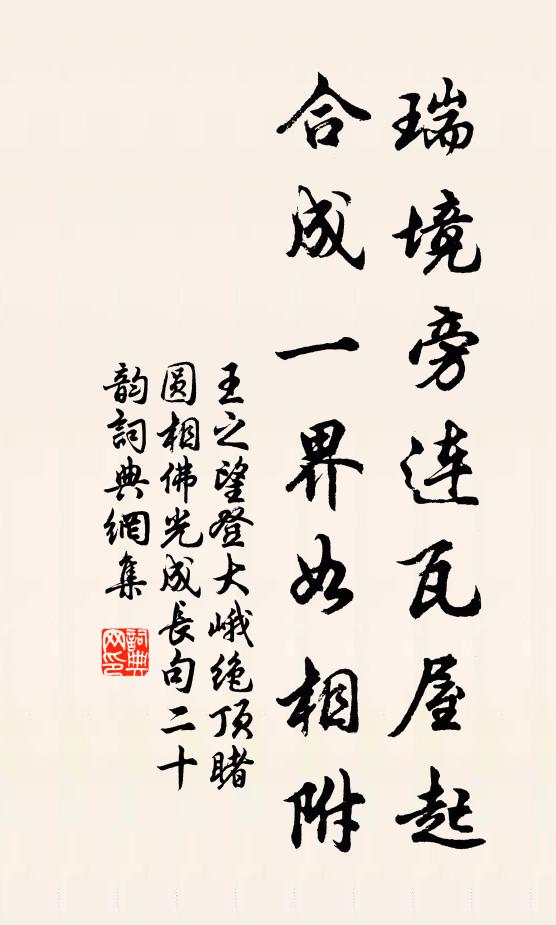 瑞境旁连瓦屋起
合成一界如相附
王之望登大峨绝顶睹
圆相佛光成长句二十
韵詞典網集
詞典網印